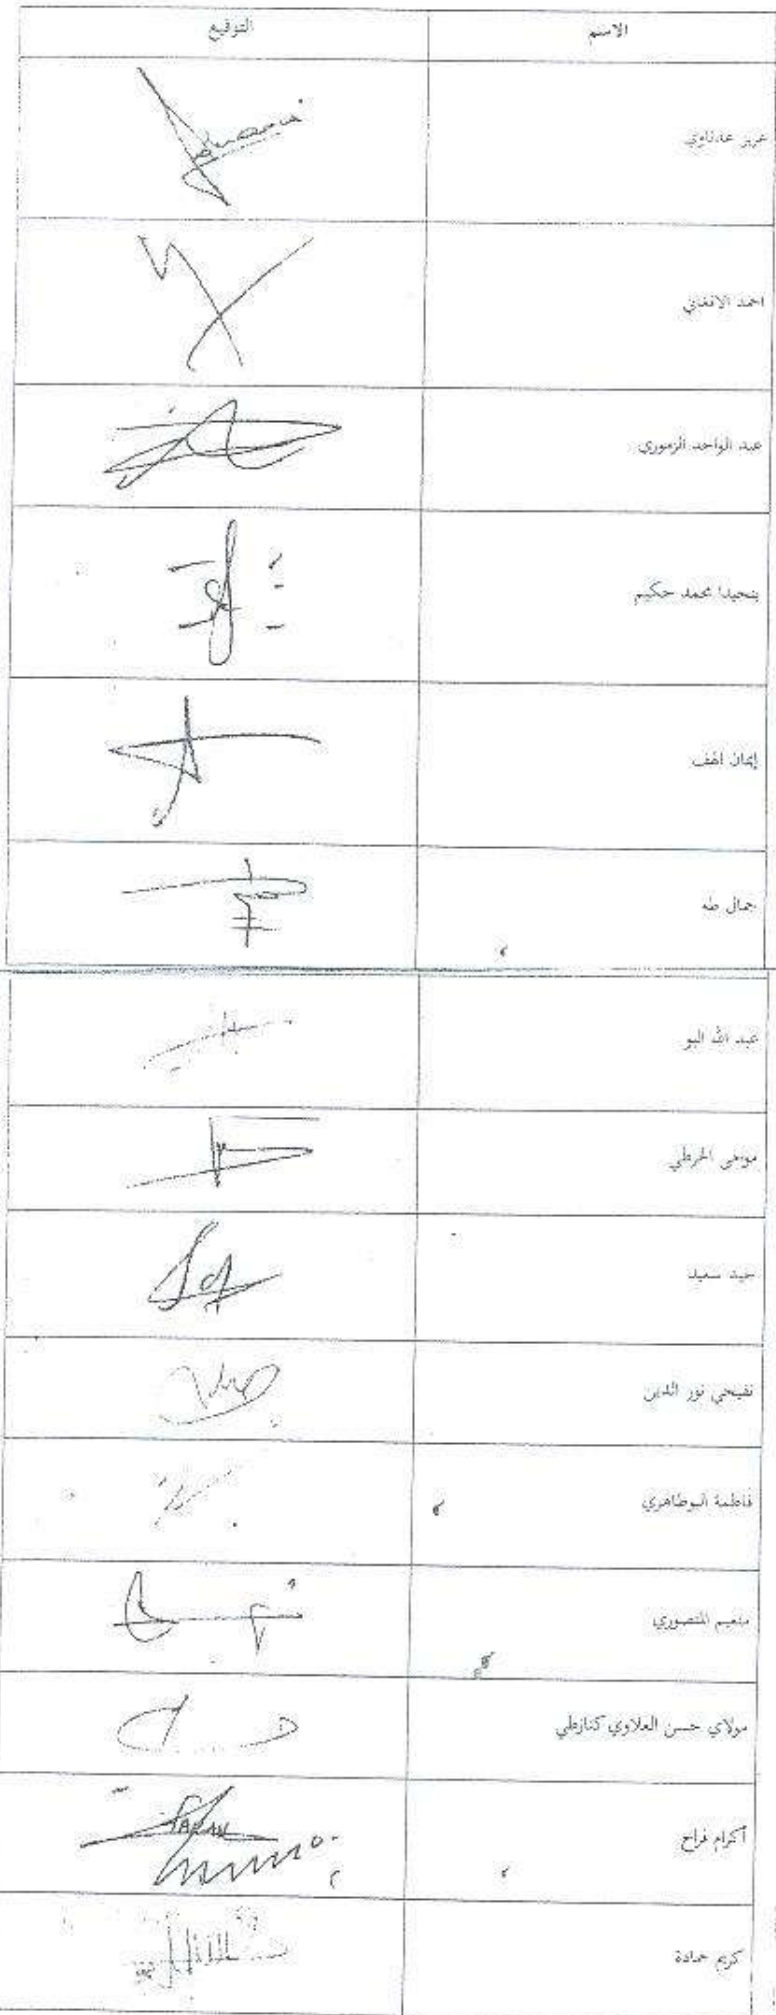 الاسم التوقيع
عزيز عدناوي
احمد الافغاني
عبد الواحد الزموري
بنحيدا محمد حكيم
إيمان اهف
جمال طه
عبد الله البو
موحى الحرطي
حيد سعيد
نفيحي نور الدين
فاطمة البوطاهري
منعيم المنصوري
مولاي حسن العلاوي كنازطي
أكرام فراح
FARAH
كريم حمادة